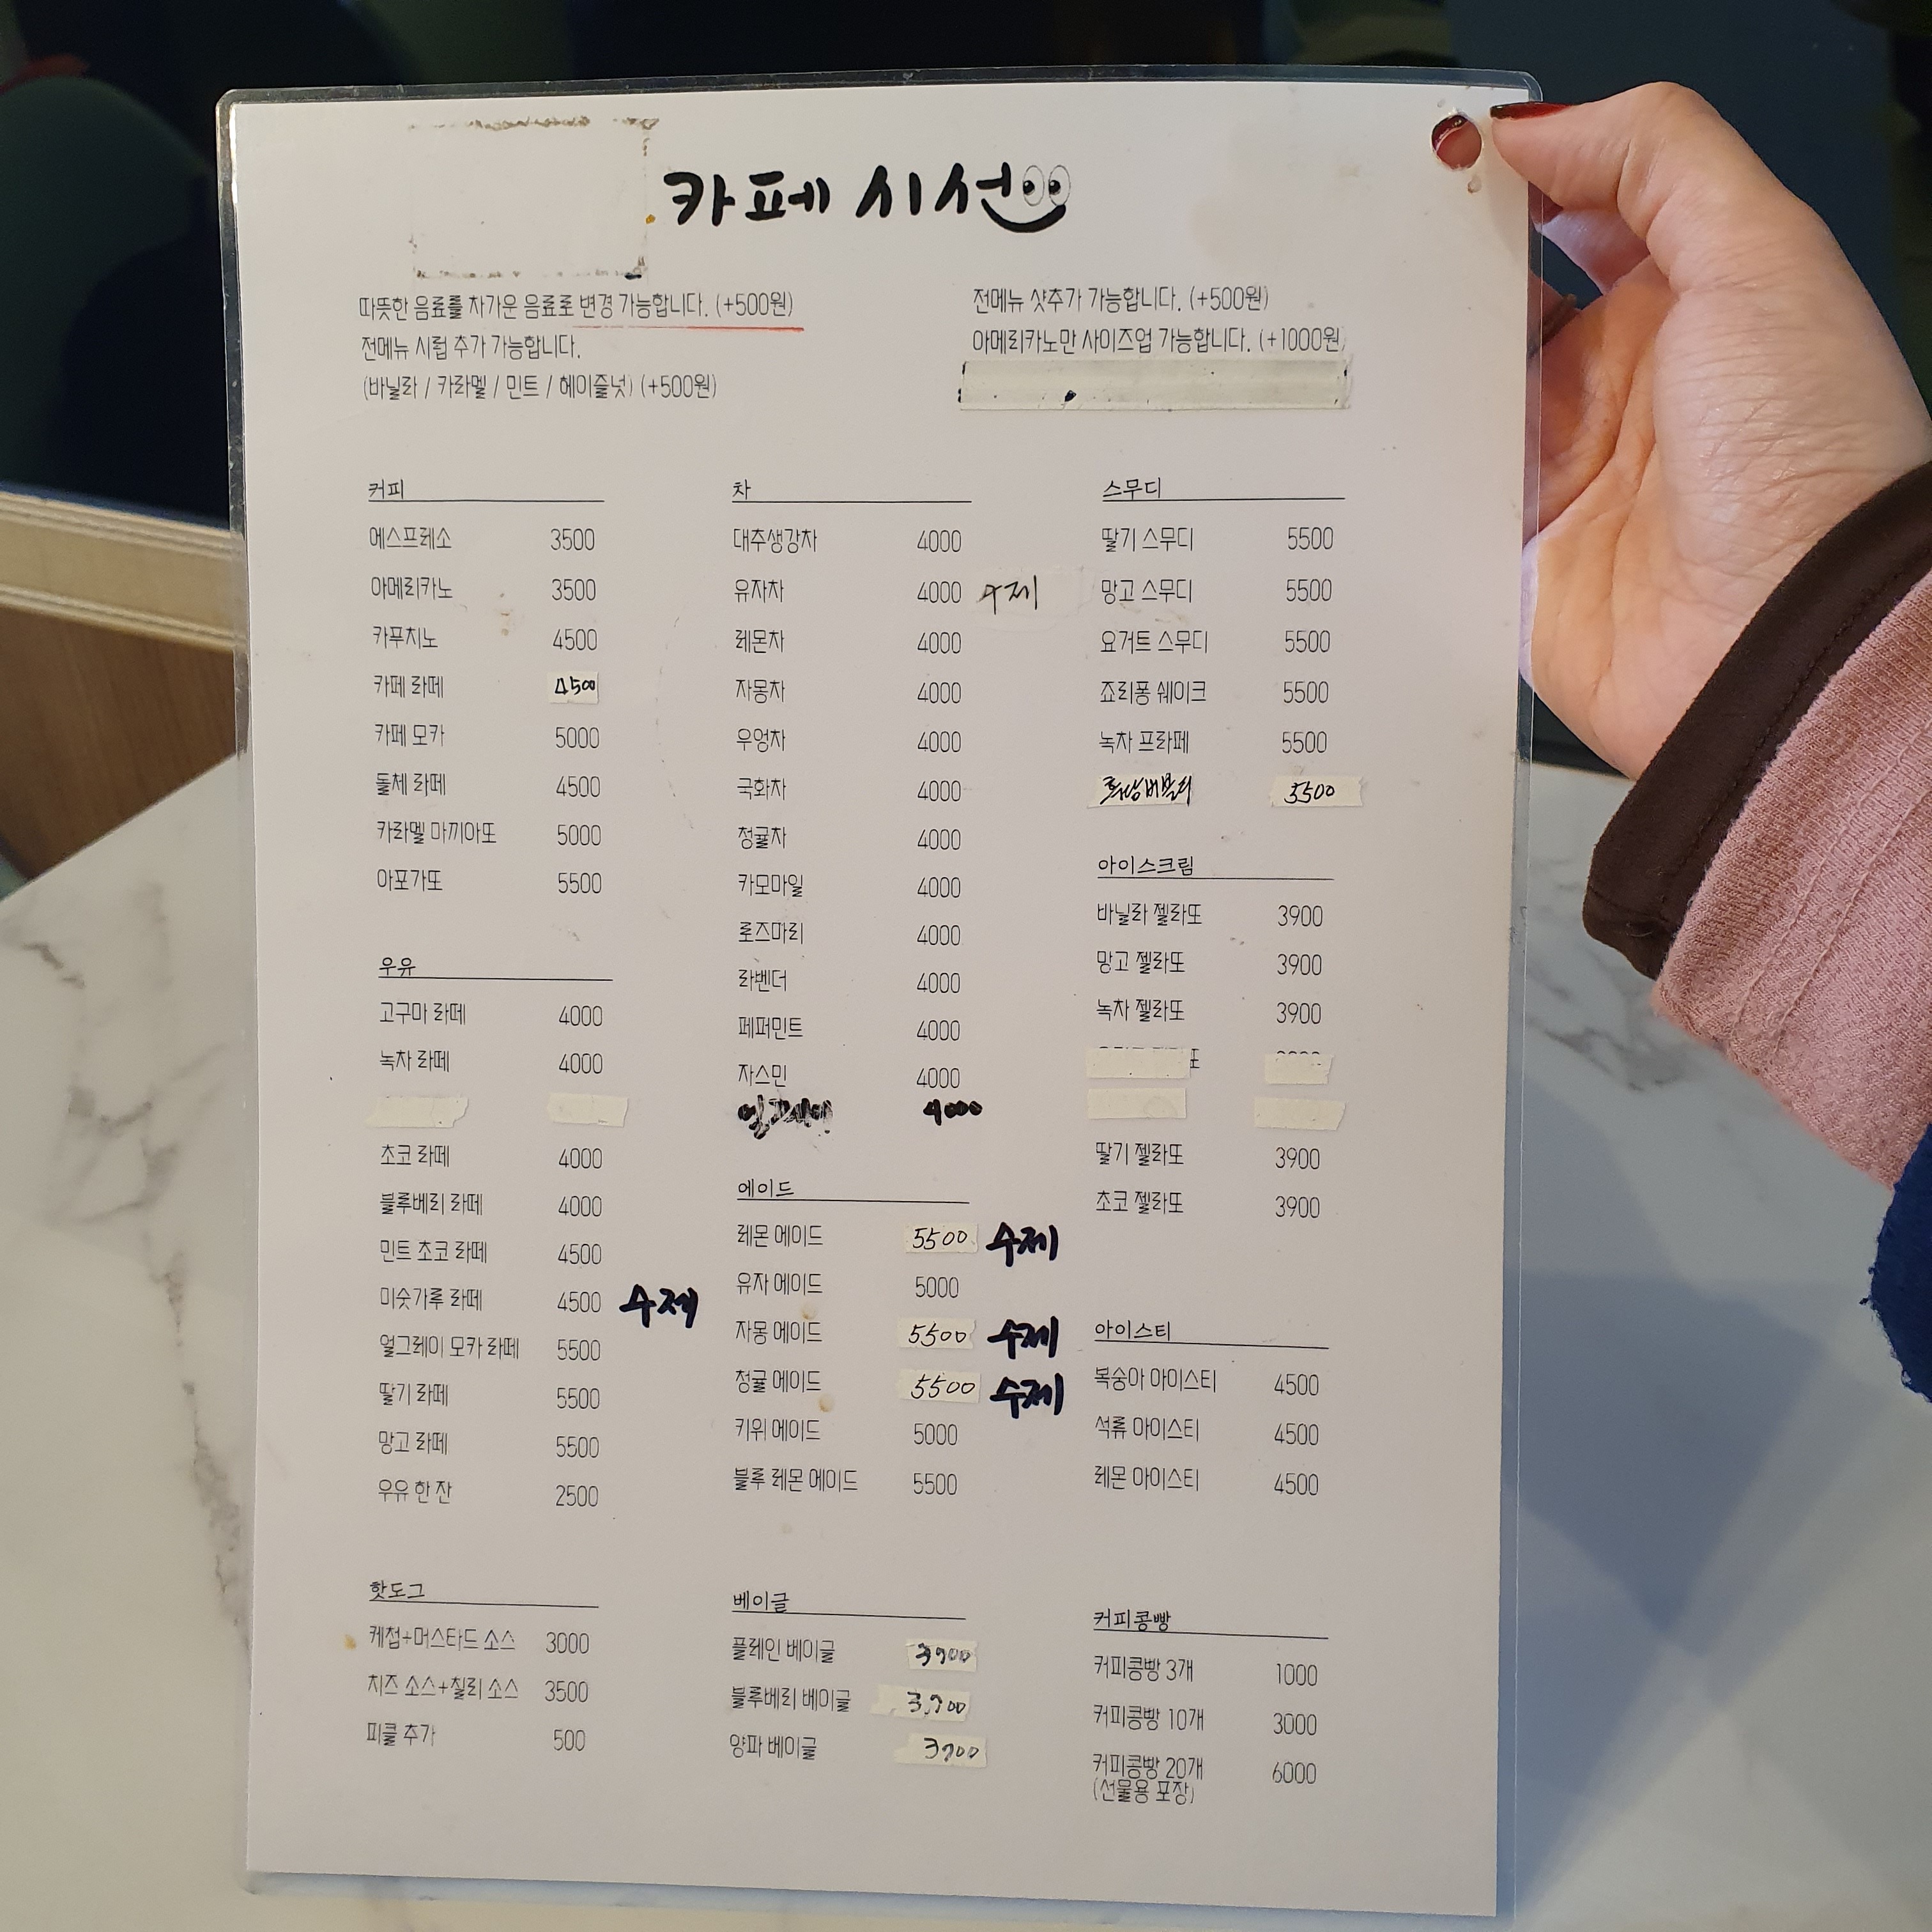 카페 시선
따뜻한 음료를 차가운 음료로 변경 가능합니다. (+500원)
전메뉴 시럽 추가 가능합니다.
(바닐라 / 카라멜 / 민트 / 헤이즐넛) (+500원)
전메뉴 샷추가 가능합니다. (+500원)
아메리카노만 사이즈업 가능합니다. (+1000원)
커피
에스프레소 3500
아메리카노 3500
카푸치노 4500
카페 라떼 4500
카페 모카 5000
돌체 라떼 4500
카라멜 마끼아또 5000
아포가또 5500
우유
고구마 라떼 4000
녹차 라떼 4000
초코 라떼 4000
블루베리 라떼 4000
민트 초코 라떼 4500
미숫가루 라떼 4500 수제
얼그레이 모카 라떼 5500
딸기 라떼 5500
망고 라떼 5500
우유 한 잔 2500
차
대추생강차 4000
유자차 4000 수제
레몬차 4000
자몽차 4000
우엉차 4000
국화차 4000
청귤차 4000
카모마일 4000
로즈마리 4000
라벤더 4000
페퍼민트 4000
자스민 4000
얼그레이 4000
에이드
레몬 에이드 5500 수제
유자 에이드 5000
자몽 에이드 5500 수제
청귤 에이드 5500 수제
키위 에이드 5000
블루 레몬 에이드 5500
스무디
딸기 스무디 5500
망고 스무디 5500
요거트 스무디 5500
죠리퐁 쉐이크 5500
녹차 프라페 5500
5500
아이스크림
바닐라 젤라또 3900
망고 젤라또 3900
녹차 젤라또 3900
딸기 젤라또 3900
초코 젤라또 3900
아이스티
복숭아 아이스티 4500
석류 아이스티 4500
레몬 아이스티 4500
핫도그
케첩+머스타드 소스 3000
치즈 소스+칠리 소스 3500
피클 추가 500
베이글
플레인 베이글 3900
블루베리 베이글 3,900
양파 베이글 3900
커피콩빵
커피콩빵 3개 1000
커피콩빵 10개 3000
커피콩빵 20개 6000
(선물용 포장)